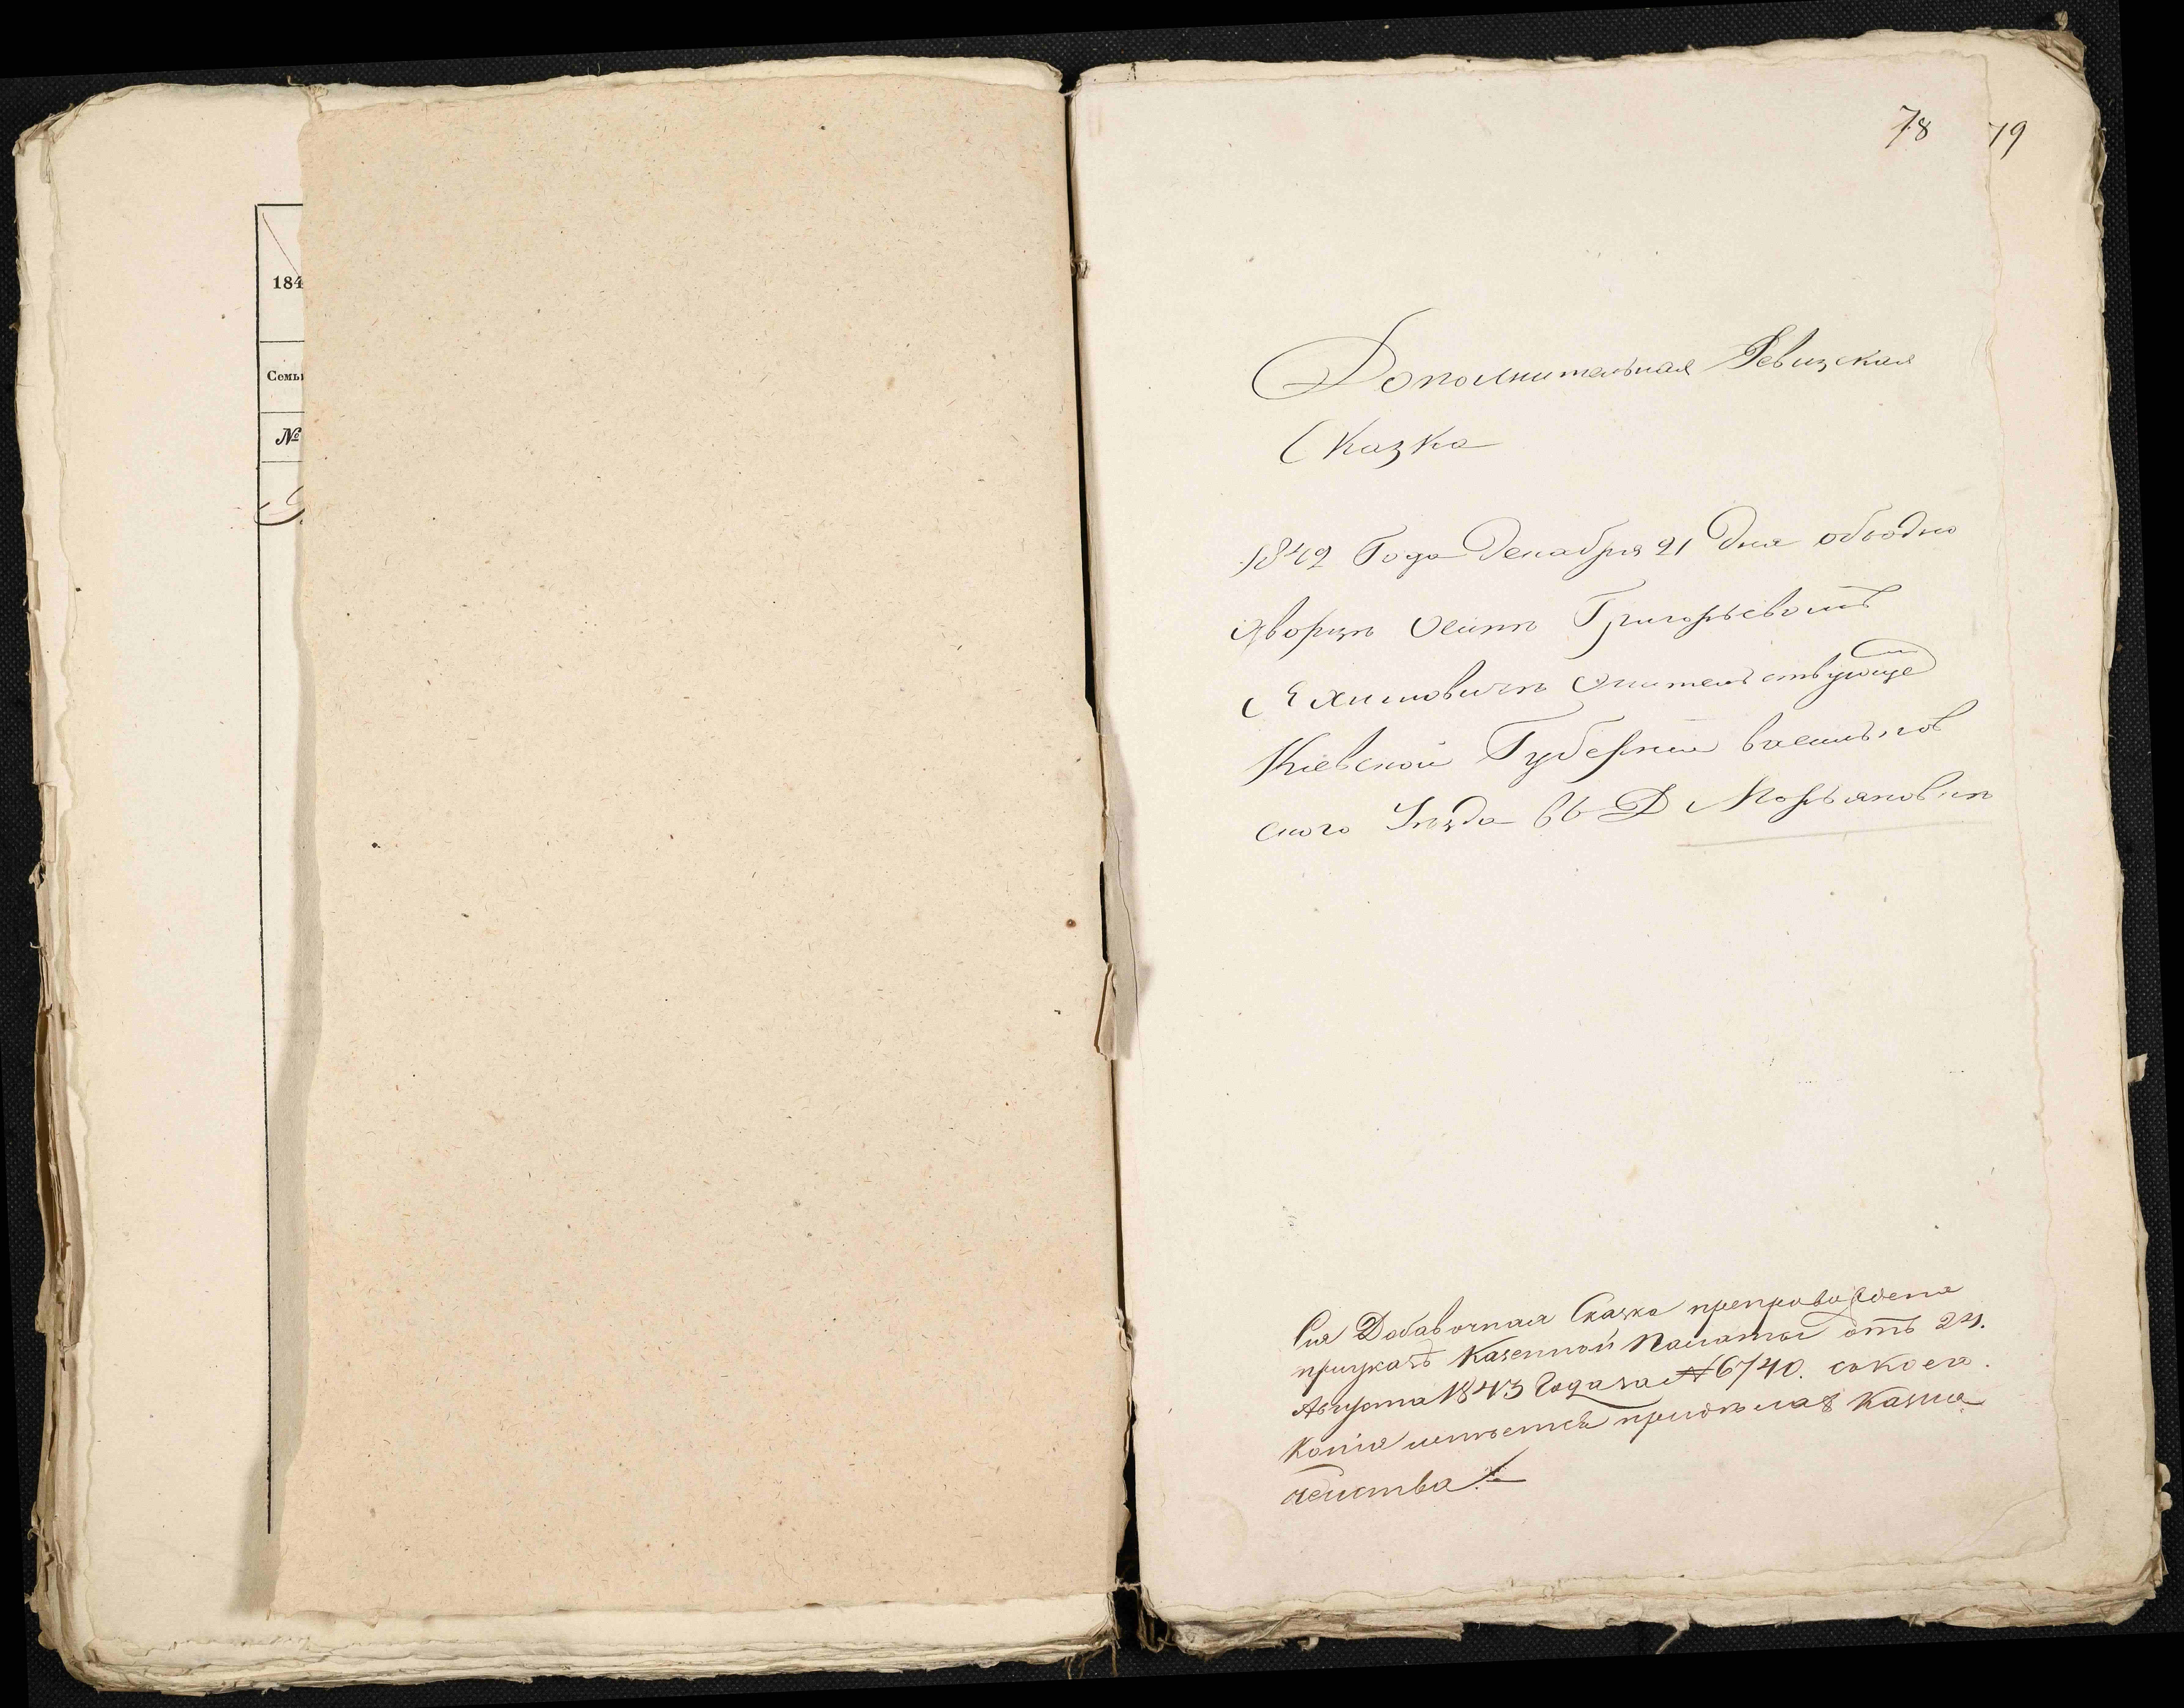 184
Семь
№
78 79
Дополнительная Ревизская
Сказка
1842 Года Декабря 21 Дня объодно
дворцѣ Осипѣ Григорьевомъ
Яхимовичѣ жительствующе
Кіевской Губерніи васильков
ского Уѣзда въ Д Марьяновкѣ
Сія Добавочная Сказка препровождена
приуказѣ Казенной Палаты отъ 24.
Августа 1843 Года за №6740. скоея
Копія имѣется придѣлах Казна
чейства